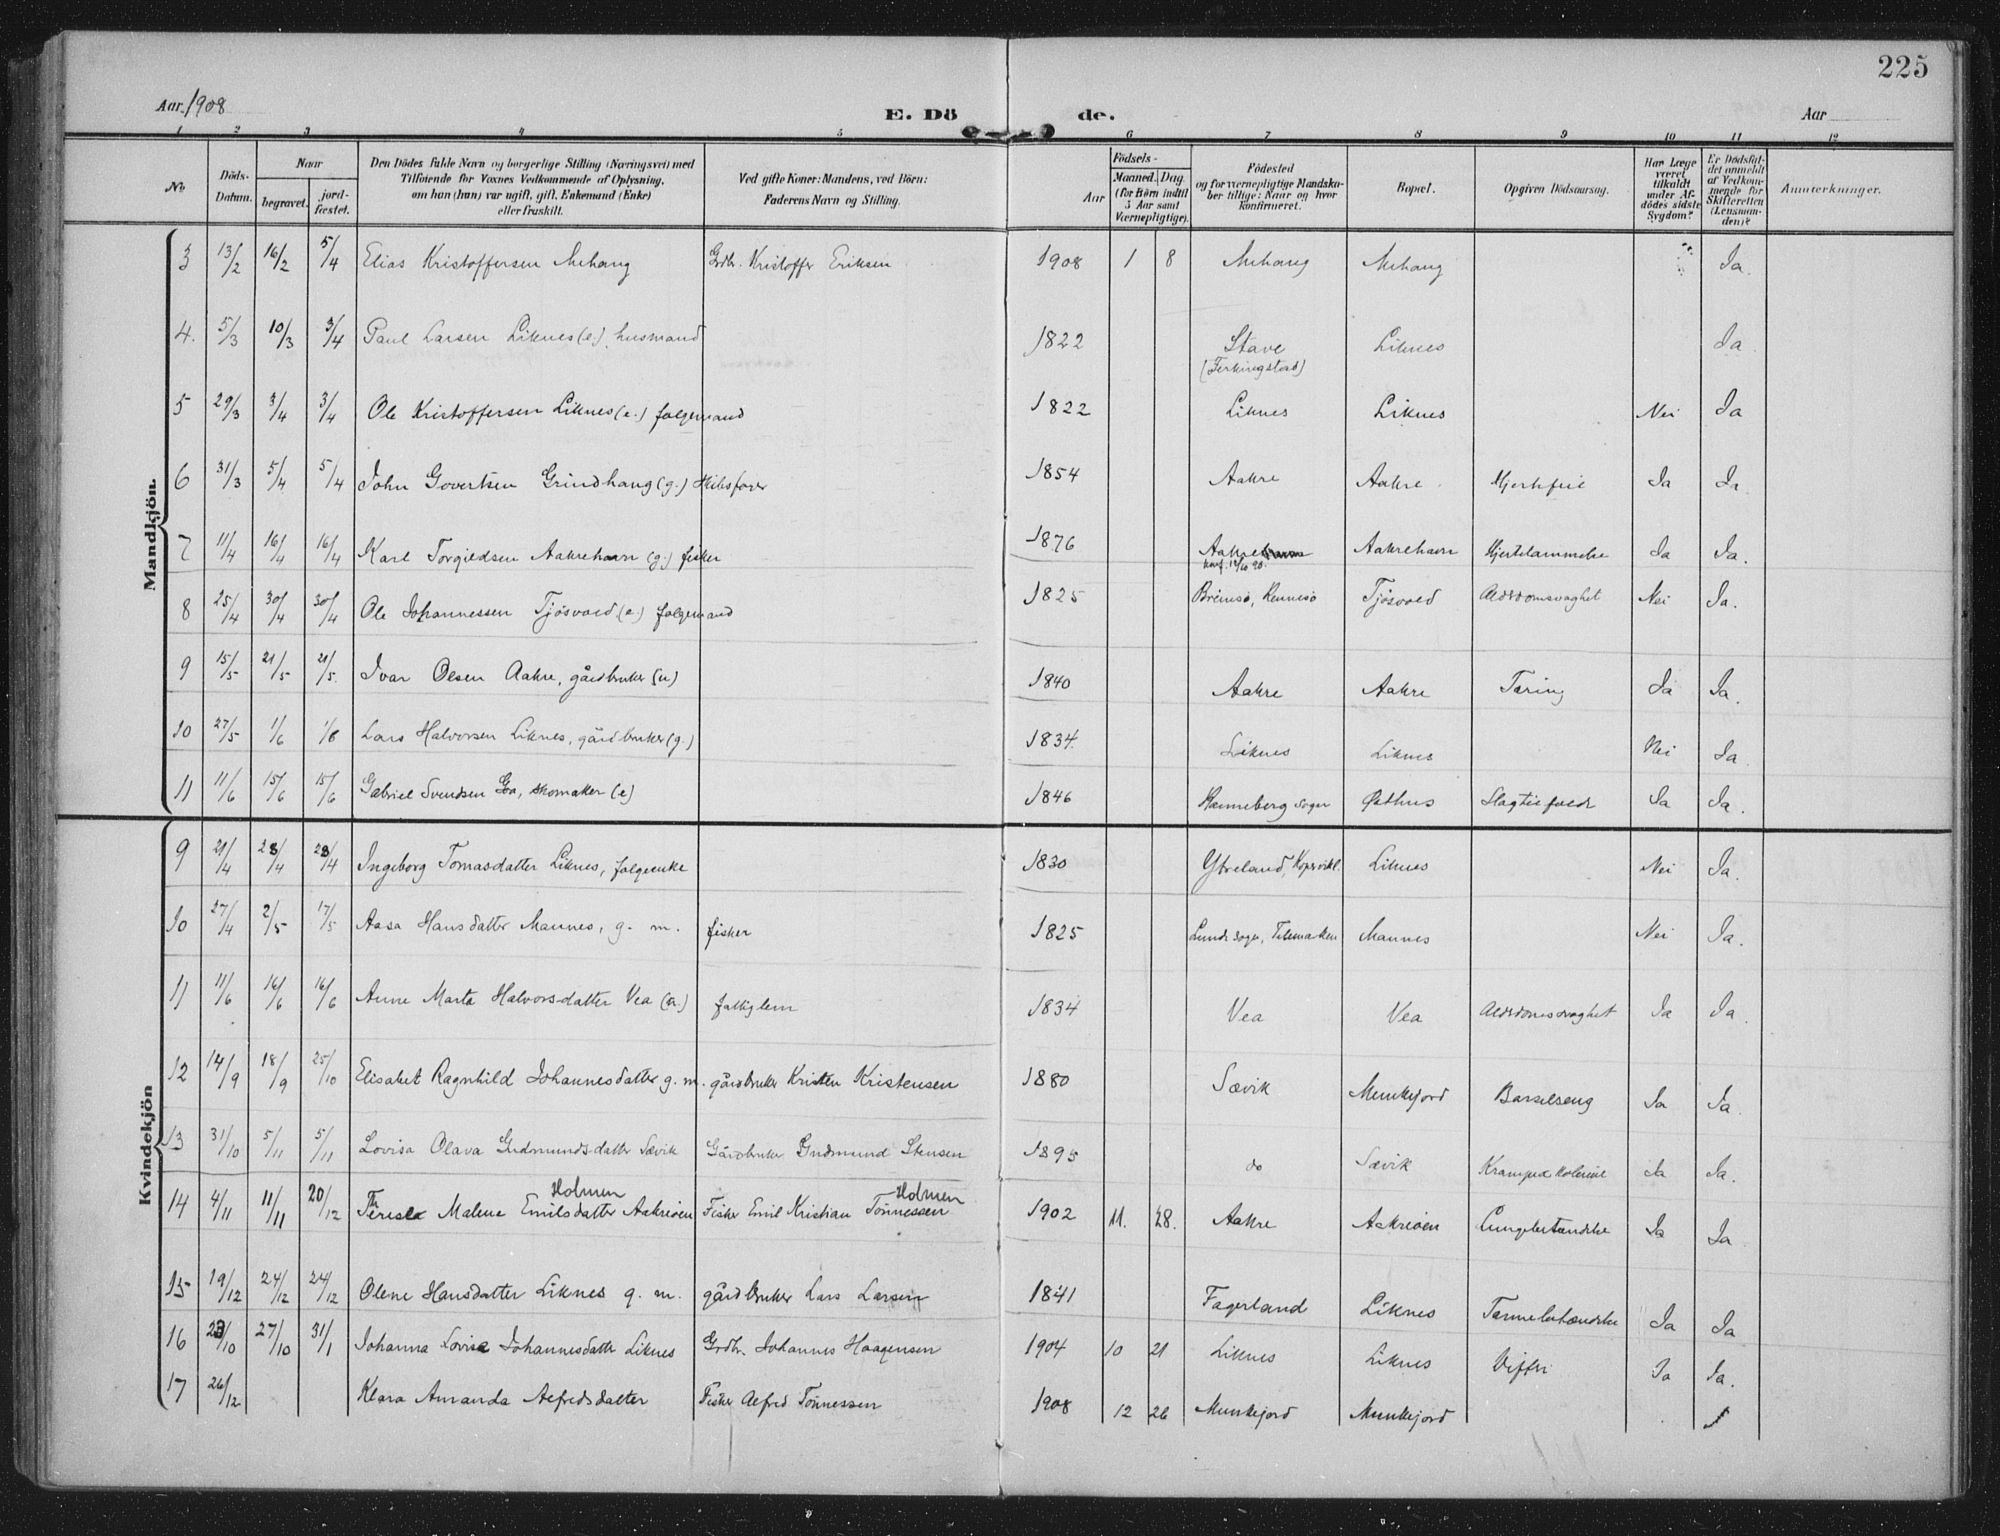 225
Aar 1908 E. Dö de. Aar
1 2 3 4 5 6 7 8 9 10 11 12
No Döds-Datum. Naar begravet. jordfæstet. Den Dödes fulde Navn og borgerlige Stilling (Næringsvei) med Tilföiende for Voxnes Vedkommende af Oplysning, om han (hun) var ugift, gift, Enkemand (Enke) eller fraskilt. Ved gifte Koner: Mandens, ved Börn: Faderens Navn og Stilling. Födsels- Aar Maaned. Dag. (for Börn indtil 5 Aar samt Værnepligtige). Födested og for værnepligtige Mandskaber tillige: Naar og hvor konfirmeret. Bopæl. Opgiven Dödsaarsag. Har Læge været tilkaldt under Afdödes sidste Sygdom? Er Dödsfaldet anmeldt af Vedkommende for Skifteretten (Lensmanden)? Anmerkninger.
Mandkjön.
3 13/2 16/2 5/4 Elias Kristoffersen Mehaug Grdbr. Kristoffer Eriksen 1908 1 8 Mehaug Mehaug Ja.
4. 5/3 10/3 3/4 Paul Larsen Liknes (e.), husmand 1822 Stave (Ferkingstad) Liknes Ja.
5 29/3 3/4 3/4 Ole Kristoffersen Liknes (e.) folgemand 1822 Liknes Liknes Nei Ja
6 31/3 5/4 5/4 John Govertsen Grindhaug (g.) 1854 Aakre Aakre Hjertefeil Ja Ja.
7 11/4 16/4 16/4 Karl Torgildsen Aakrehavn (g.) fisker 1876 Aakre konf. 12/10 90. Aakrehavn Hjertelammelse Ja Ja.
8 25/4 30/4 30/4 Ole Johannessen Tjösvold (e.) folgemand 1825 Rennesö Tjösvold Alderdomsvaghet Nei Ja.
9 15/5 21/5 21/5. Ivar Olsen Aakre, gårdbruker (u) 1840 Aakre Aakre Tæring Ja Ja.
10 27/5 1/6 1/6 Lars Halvorsen Liknes, gårdbruker (g.) 1834. Liknes Liknes Nei Ja.
11 11/6 15/6 15/6 Gabriel Svendsen Goa, skomaker (e) 1846 Kanneberg sogn Østhus Slagtilfælde Ja Ja.
Kvindekjön
9 21/4 28/4 28/4 Ingeborg Tomasdatter Liknes, folgeenke 1830 Ytreland, Kopervik l. Liknes Nei Ja.
10 27/4 2/5 17/5 Aasa Hansdatter Mannes, g. m. fisker 1825 Lunde sogn, Telemarken Mannes Nei Ja.
11 11/6 16/6 16/6 Anne Marta Halvorsdatter Vea fattiglem 1834 Vea Vea Alderdomsvaghet Ja Ja.
12 14/9 18/9 25/10 Elisabet Ragnhild Johannesdatter g. m. gårdbruker Kristen Kristensen 1880 Sævik Munkejord Barselseng Ja Ja.
13 31/10 5/11 5/11 Lovisa Olava Gudmundsdatter Sævik Gårdbruker Gudmund Stensen 1895 do Sævik Krampekolerine Ja Ja.
14 4/11 11/11 20/12 Teresie Malene Emilsdatter Holmen Aakreöen Fisker Emil Kristian Tönnessen Holmen 1902 11. 28. Aakre Aakreöen Lungebetændelse Ja Ja.
15 19/12 24/12 24/12 Olene Hansdatter Liknes g. m. gårdbruker Lars Larsen 1841 Fagerland Liknes Tarmebetændelse Ja Ja
16 23/10 27/10 31/1 Johanna Lovise Johannesdatter Liknes Grdbr. Johannes Haagensen 1904 10 21 Liknes Liknes Ja Ja.
17 26/12 Klara Amanda Alfredsdatter Fisker Alfred Tönnessen 1908 12 26 Munkejord Munkejord